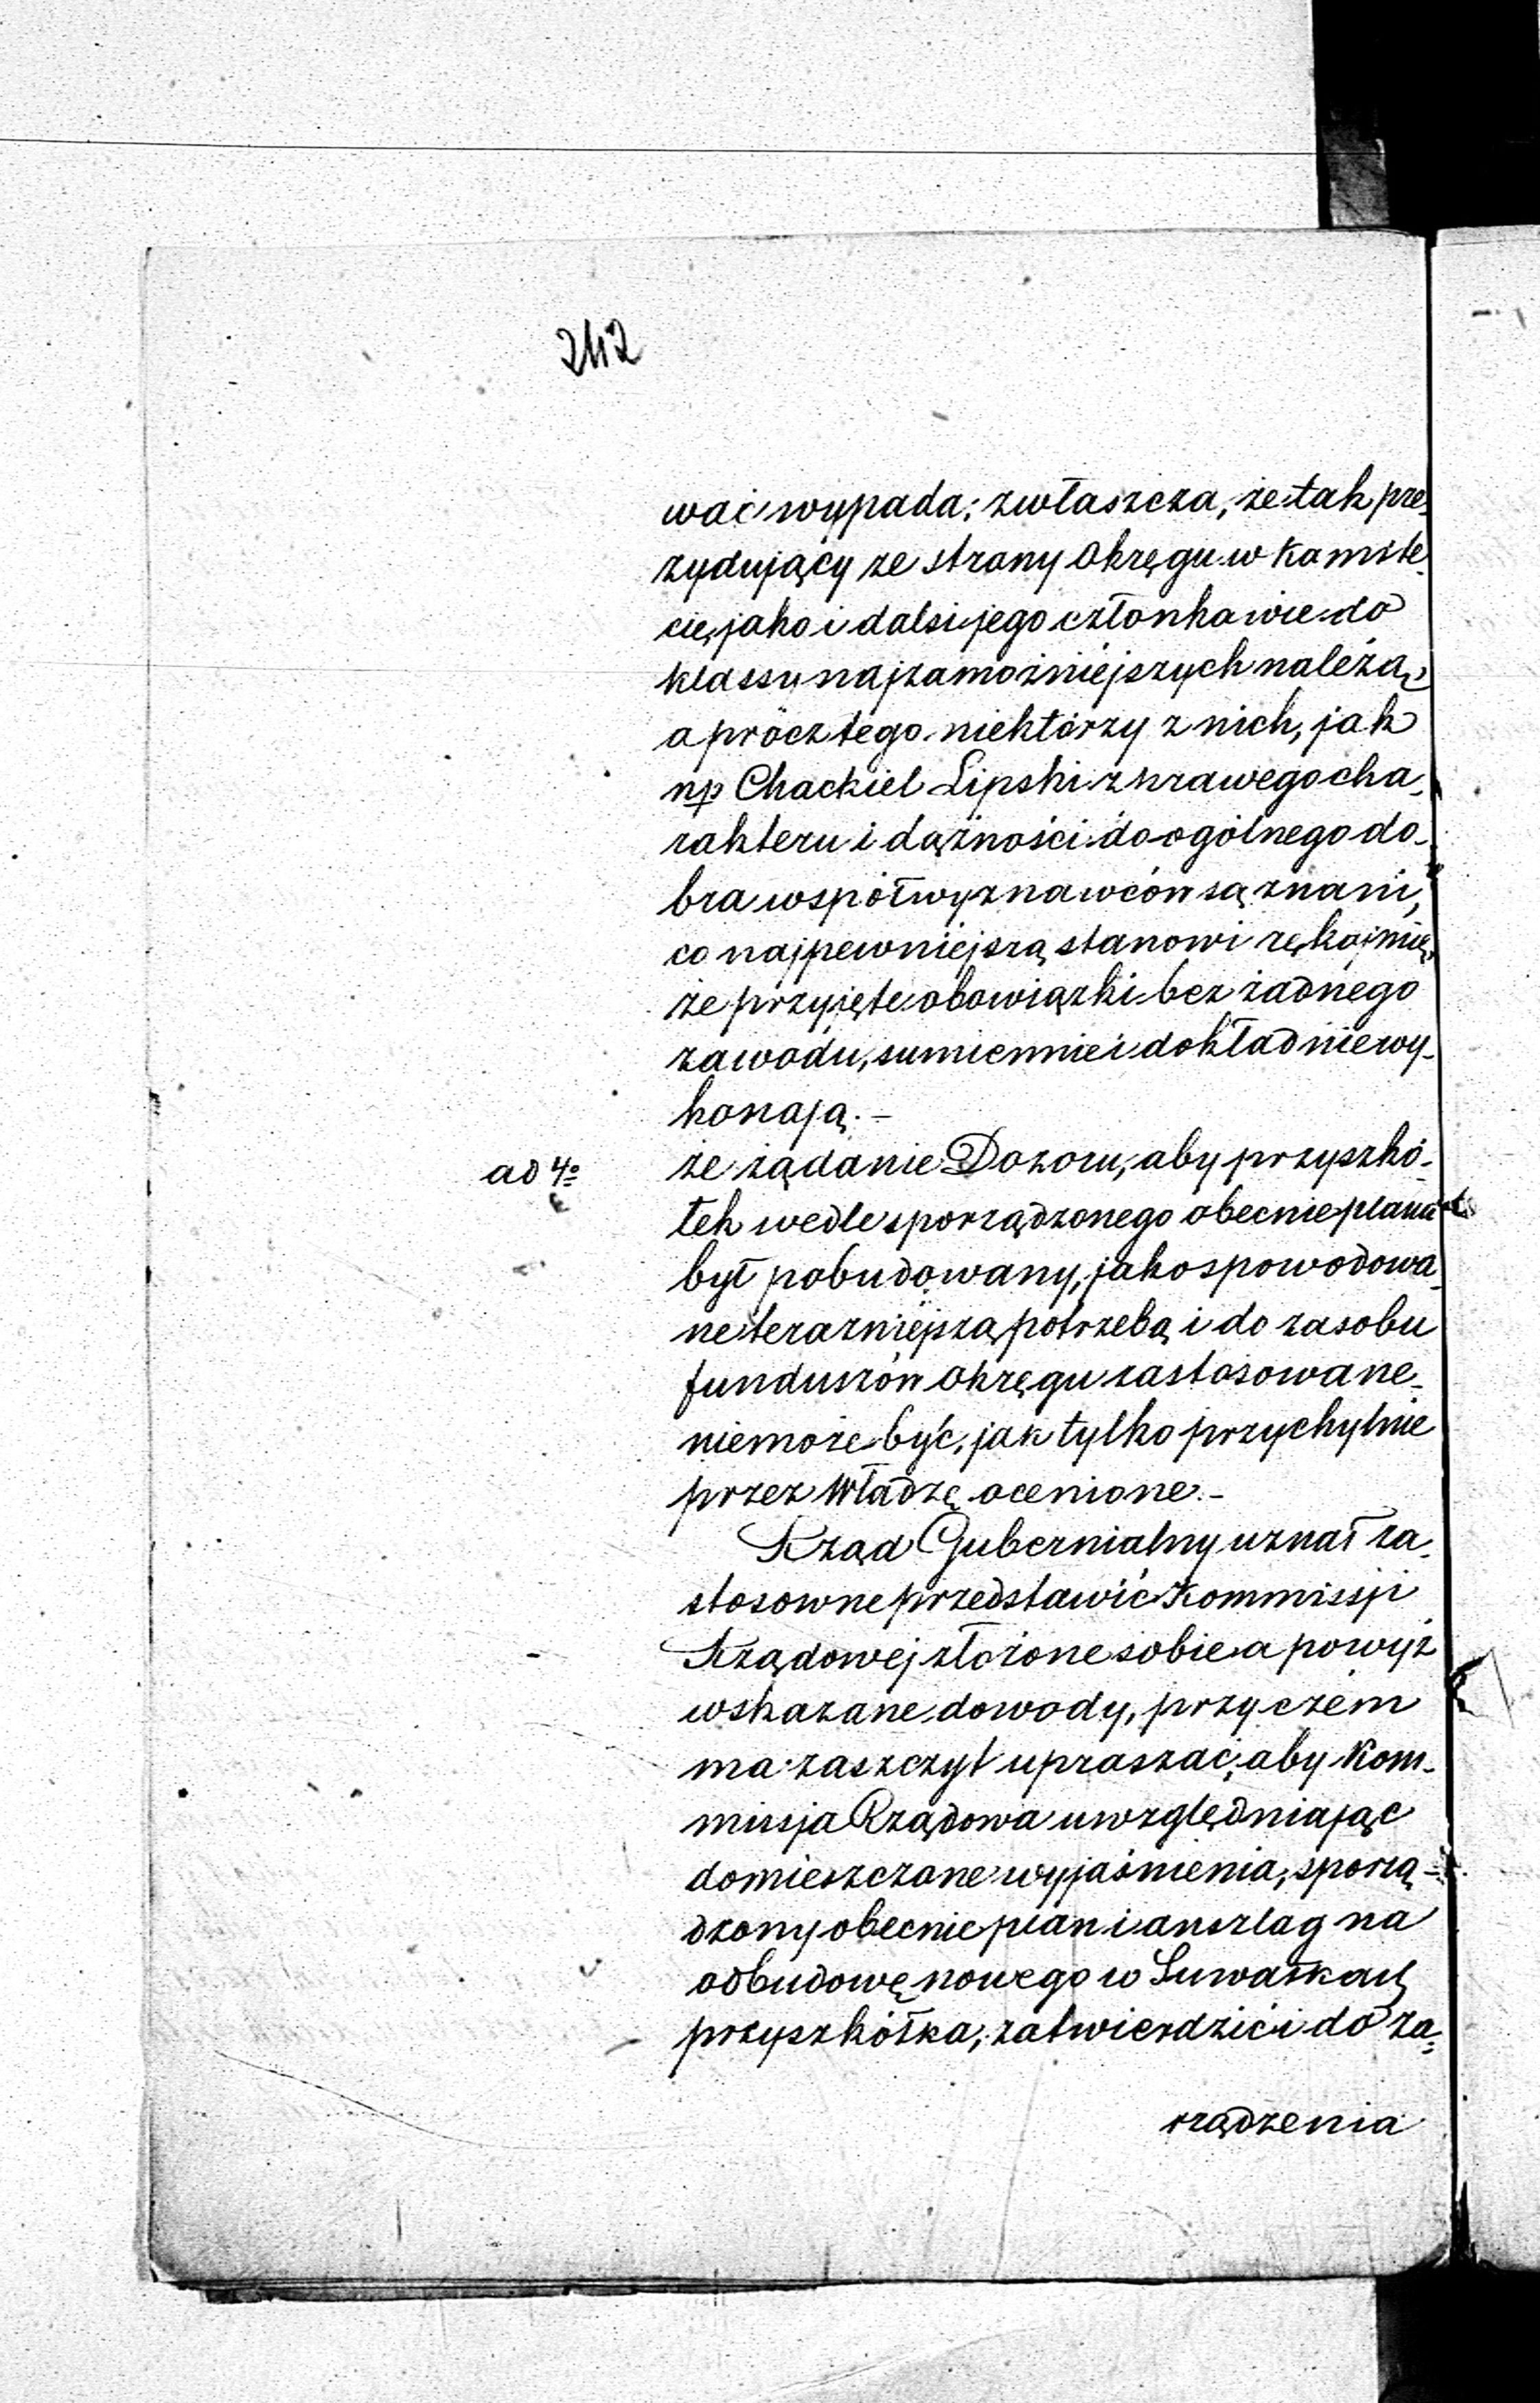 242
wać wypada; zwłaszcza, że tak pre-
zydujący ze strony Okręgu w Komite-
cie, jako i dalsi jego członkowie do
klassy najzamożniejszych należą,
a prócz tego niektórzy z nich, jak
np Chackiel Lipski z prawego cha-
rakteru i dążności do ogólnego do-
bra współwyznawców są znani,
co najpewniejszą stanowi rękojmię,
że przyjęte obowiązki bez żadnego
zawodu, sumiennie i dokładnie wy-
konają. -
ad 4o że żądanie Dozoru, aby przyszkó-
łek wedle sporządzonego obecnie planu
był pobudowany, jako spowodowa-
ne teraźniejszą potrzebą i do zasobu
funduszów Okręgu zastosowane -
niemoże być, jak tylko przychylnie
przez Władzę ocenione. -
Rząd Gubernialny uznał za
stosowne przedstawić Kommissji
Rządowej złożone sobie a powyż
wskazane dowody, przyczem
ma zaszczyt upraszać, aby Kom-
missja Rządowa uwzględniając
domieszczone wyjaśnienia, sporzą-
dzony obecnie plan i anszlag na
odbudowę nowego w Suwałkach
przyszkółka, zatwierdzić i do za-
rządzenia